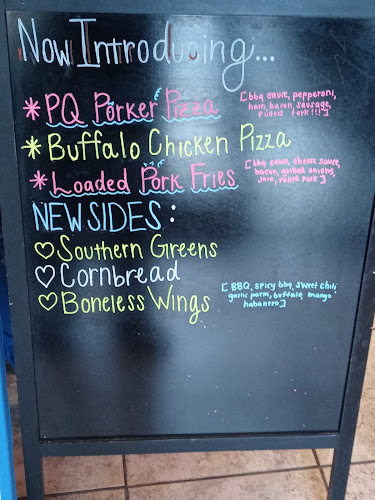 Now Introducing...
* PQ Porker Pizza
[bbq sauce, pepperoni,
ham, bacon, sausage,
pulled pork!!!]
* Buffalo Chicken Pizza
* Loaded Pork Fries
[bbq sauce, cheese sauce,
bacon, grilled onions,
pulled pork]
NEW SIDES:
♡ Southern Greens
♡ Cornbread
♡ Boneless Wings
[BBQ, spicy bbq, sweet chili
garlic parm, buffalo, mango
habanero]